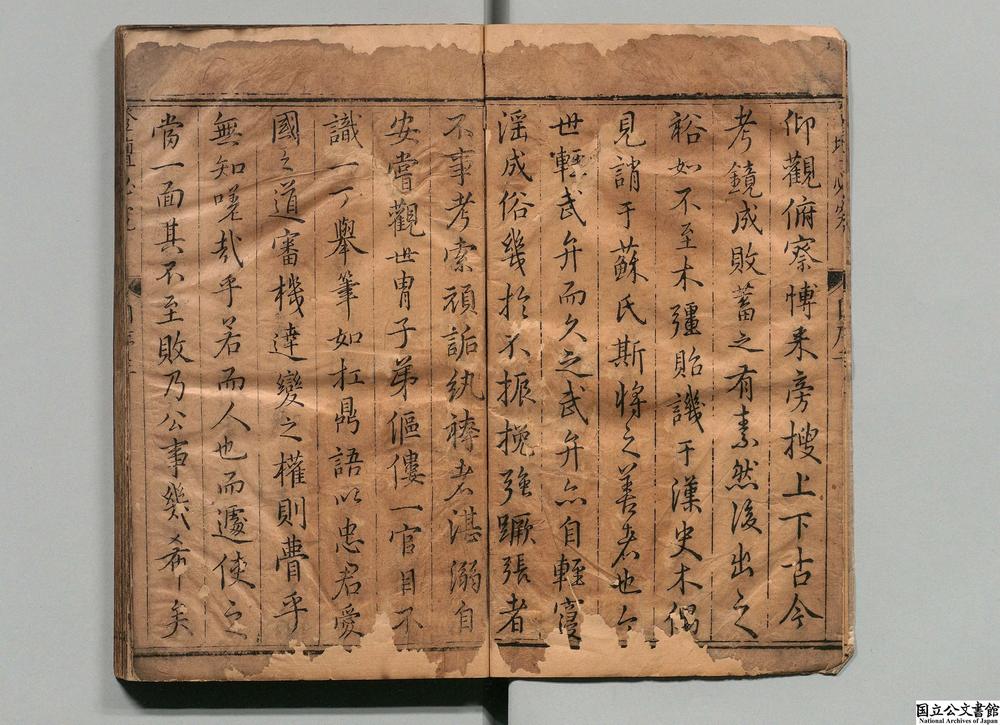 仰觀俯察博采旁搜上下古今
考鏡成敗蓄之有素然後出之
裕如不至木彊貽譏于漢史木偶
見誚于蘇氏斯將之善者也今
世輕武弁而久之武弁亦自輕寖
淫成俗幾於不振挽强蹶張者
不事考索頑詬紈袴者湛溺自
安嘗觀世冑子弟傴僂一官目不
識一丁舉筆如扛鼎語以忠君愛
國之道審機達變之權則瞢乎
無知嗟哉乎若而人也而遽使之
當一面其不至敗乃公事幾希矣
国立公文書館
National Archives of Japan